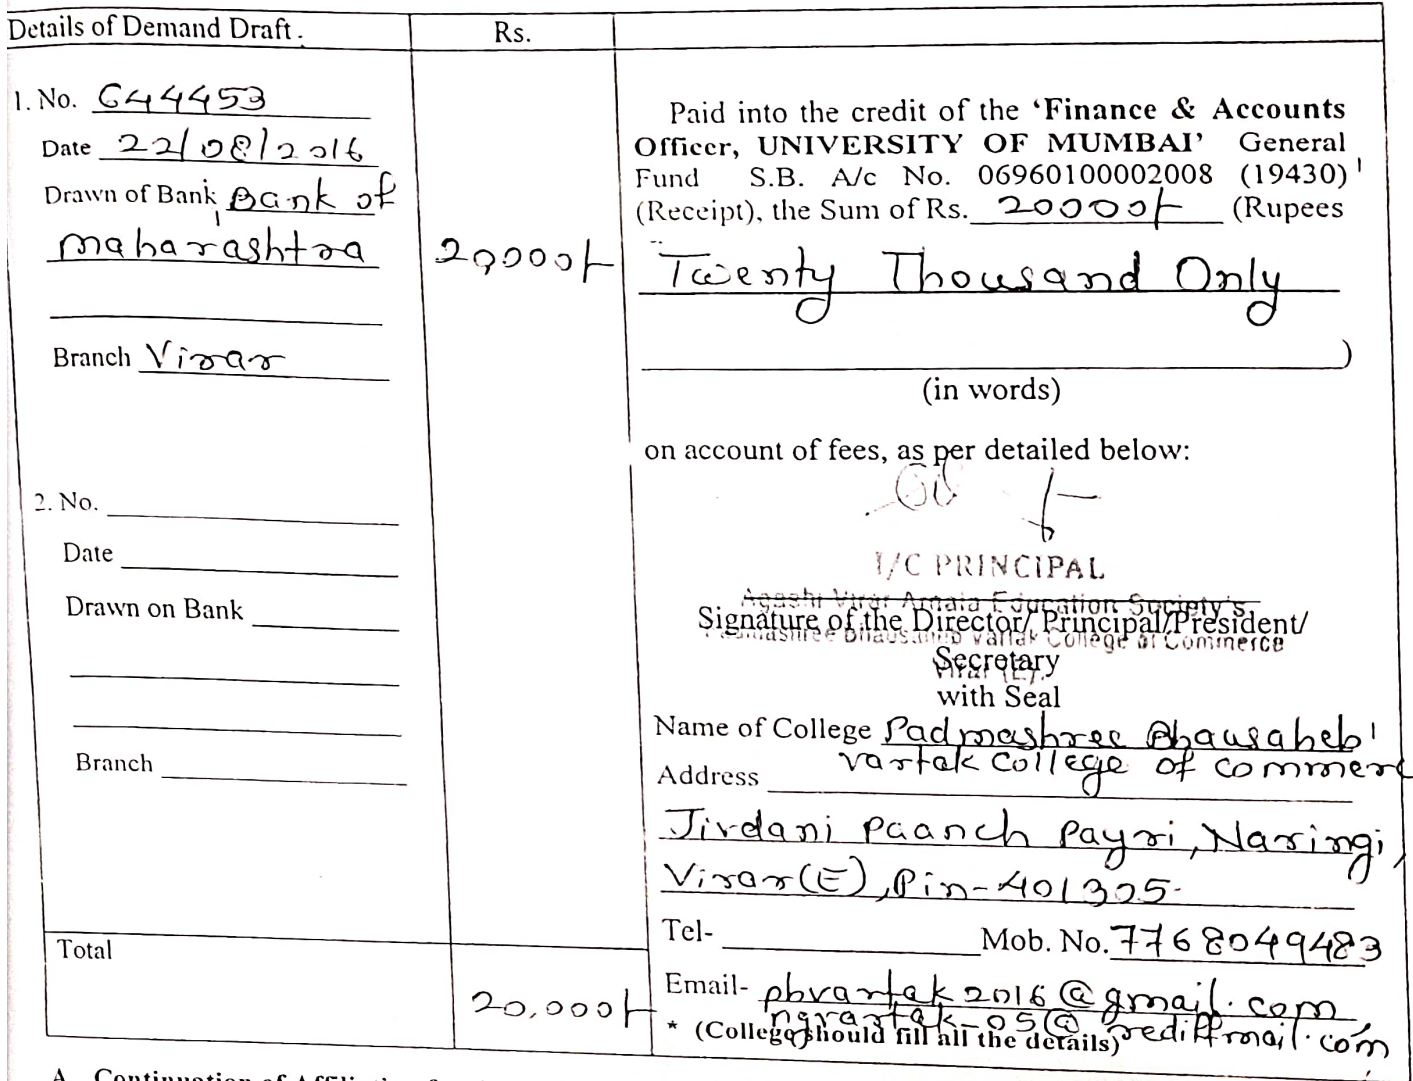 Details of Demand Draft.
Rs.
1. No. 644453
Date 22/08/2016
Drawn of Bank Bank of
maharashtra
20,000/-
Branch Virar
2. No.
Date
Drawn on Bank
Branch
Total
20,000/-
Paid into the credit of the ‘Finance & Accounts
Officer, UNIVERSITY OF MUMBAI’ General
Fund S.B. A/c No. 06960100002008 (19430)
(Receipt), the Sum of Rs. 20000/- (Rupees
Twenty Thousand Only
)
(in words)
on account of fees, as per detailed below:
I/C PRINCIPAL
Agashi Virar Arnala Education Society's
Signature of the Director/ Principal/President/
Padmashree Bhausaheb Vartak College of Commerce
Secretary
Virar (E).
with Seal
Name of College Padmashree Bhausaheb
vartak College of commerc
Address
Jivdani Paanch Payri, Naringi,
Virar(E), Pin-401305.
Tel- Mob. No. 7768049483
Email- pbvartak2016@gmail.com
ngvartak-05@rediffmail.com
* (College should fill all the details)